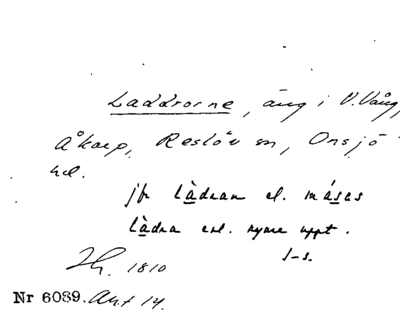 Laddrorne, äng i V. Vång,
Åkarp, Reslöv sn, Onsjö
hd.
jfr Làdran el. måsas
Làdra enl. nyare uppt.
S-s.
1810
Nr 6089. Akt 14.